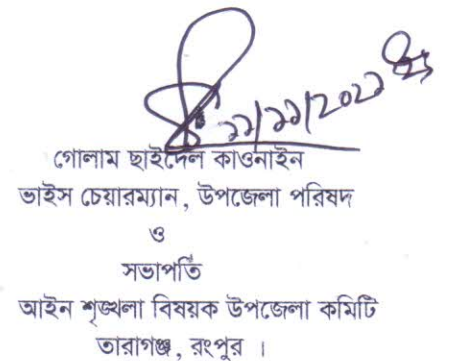 ২২/১১/২০২২
গোলাম ছাইদেল কাওনাইন
ভাইস চেয়ারম্যান, উপজেলা পরিষদ
ও
সভাপতি
আইন শৃঙ্খলা বিষয়ক উপজেলা কমিটি
তারাগঞ্জ, রংপুর ।